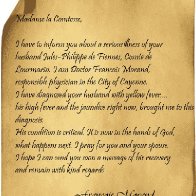 Madame la Comtesse,
I have to inform you about a serious illness of your
husband Jules-Philippe de Fiennes, Comte de
Lourmarin. I am Doctor Francois Morand,
responsible physician in the City of Cayenne.
I have diagnosed your husband with yellow fever....
his high fever and the jaundice right now, brought me to this
diagnosis.
His condition is critical. It is now in the hands of God,
what happens next. I pray for you and your spouse.
I hope I can send you soon a message of his recovery
and remain with kind regards
Francois Morand